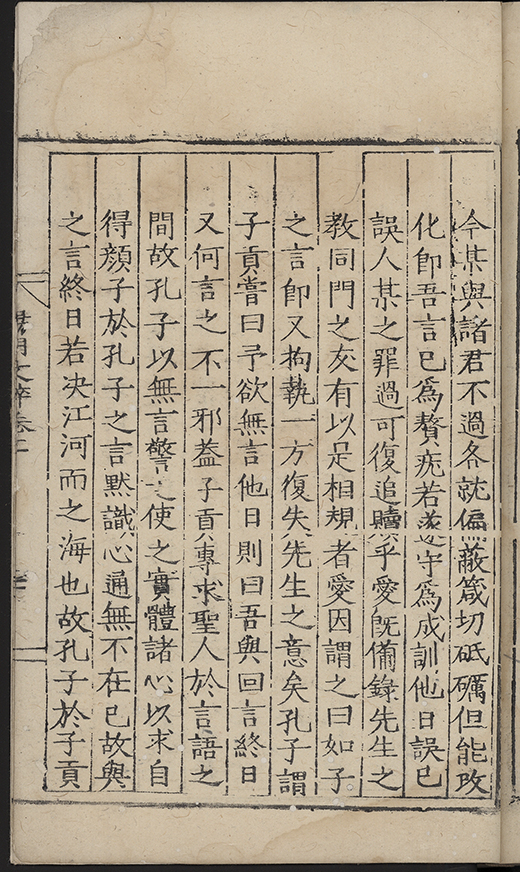 今某與諸君不過各就偏蔽箴切砥礪但能改
化即吾言已爲贅疣若遂守爲成訓他日誤已
誤人某之罪過可復追贖乎愛既備錄先生之
教同門之友有以是相規者愛因謂之曰如子
之言即又拘執一方復失先生之意矣孔子謂
子貢嘗曰予欲無言他日則曰吾與回言終日
又何言之不一邪蓋子貢專求聖人於言語之
間故孔子以無言警之使之實體諸心以求自
得顏子於孔子之言默識心通無不在已故與
之言終日若决江河而之海也故孔子於子貢
明文